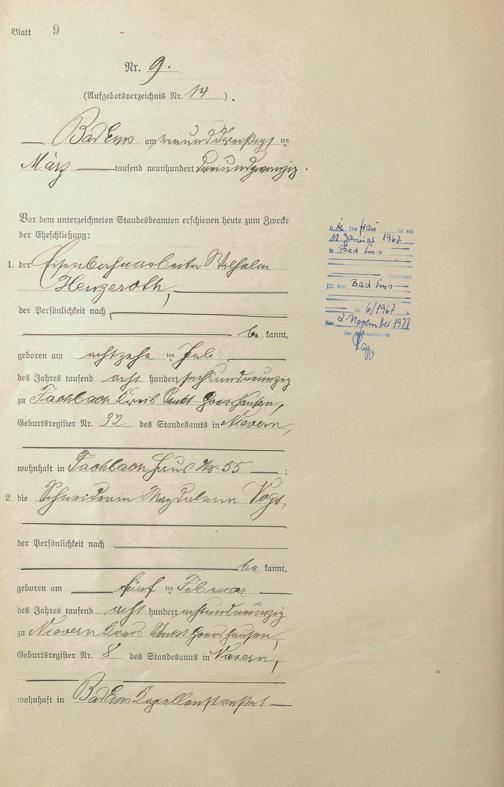 Blatt 9
Nr. 9.
(Aufgebotsverzeichnis Nr. 14).
Bad Ems am einunddreißigsten
März tausend neunhundert dreiundzwanzig.
Vor dem unterzeichneten Standesbeamten erschienen heute zum Zwecke
der Eheschließung:
1. der Eisenbahnarbeiter Wilhelm
Henzeroth,
der Persönlichkeit nach
bekannt,
geboren am achtzehn ten Juli
des Jahres tausend acht hundert sechsundneunzig
zu Fachbach Kreis Sankt Goarshausen,
Geburtsregister Nr. 32 des Standesamts in Nievern,
wohnhaft in Fachbach Haus No 55;
2. die Schneiderin Magdalena Vogt,
der Persönlichkeit nach
bekannt,
geboren am fünf ten Februar
des Jahres tausend acht hundert achtundneunzig
zu Nievern Kreis Sankt Goarshausen,
Geburtsregister Nr. 8 des Standesamts in Nievern,
wohnhaft in Bad Ems
Die Frau ist am
11. Januar 1967
in Bad Ems
Bad Ems
Nr. 6/1967
2. November 1971
Der Standesbeamte